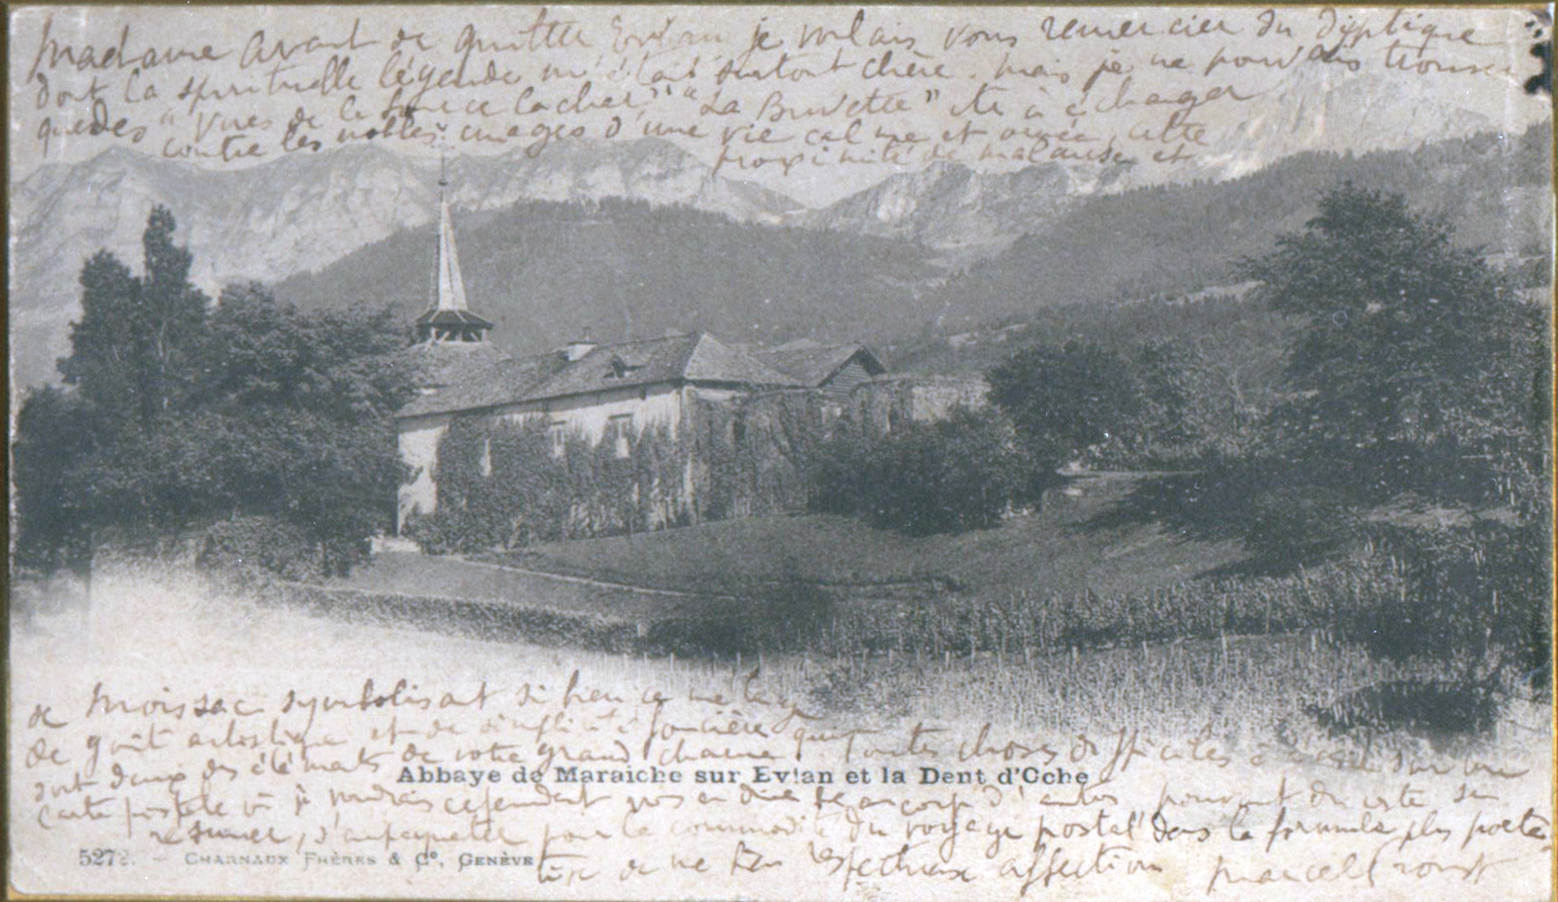 Madame avant de quitter Evian je voulais vous remercier du dyptique
dont la spirituelle légende m'était surtout chère. Mais je ne pouvais trouver
que des "Vues de la Source Cachat" "La Buvette" etc à échanger
contre les nobles images d'une vie calme et ornée, cette
proximité de et
de Moissac symbolisant si bien ce mélange
de goût artistique et de simplicité foncière qui
sont deux des éléments de votre grand charme. Toutes choses difficiles à sur une
carte postale où je voudrais cependant vous en dire beaucoup d'autres pouvant du reste se
résumer, s'empaqueter pour la commodité du voyage postal dans la formule plus
de ma respectueuse affection Marcel Proust
Abbaye de Maraiche sur Evian et la Dent d'Oche
5272. - CHARNAUX FRÈRES & Cº, GENÈVE